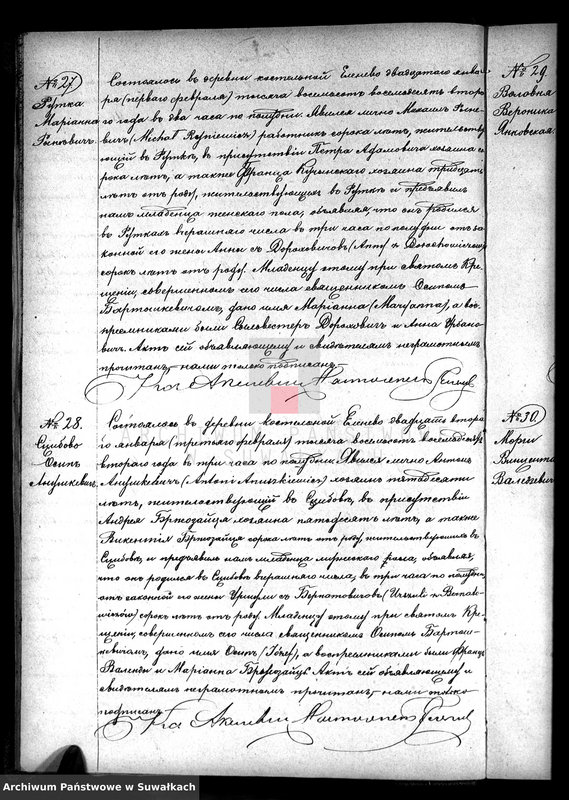 № 27
Рутка
Маріанна
Рыневичъ.
Состоялось въ деревни костельной Еленево двадцатого янва-
ря (перваго февраля) тысяча восемьсотъ восемьдесятъ второ-
го года въ два часа по полудни. Явился лично Михаилъ Рыне-
вичъ (Michał Ryniewicz) работникъ сорока лѣтъ, жительству-
ющій въ Руткѣ, въ присутствіи Петра Адамовича хозяина со-
рока лѣтъ, а также Франца Кучинского хозяина тридцати
лѣтъ отъ роду, жительствующихъ въ Руткѣ и предъявилъ
намъ младенца женскаго пола, объявляя, что онъ родился
въ Руткахъ вчерашняго числа въ три часа по полудни отъ за-
конной его жены Анны съ Дороховичовъ (Anny z Dorochowiczów)
сорокъ лѣтъ отъ роду. Младенцу этому при святомъ Кре-
щеніи, совершенномъ сего числа священникомъ Осипомъ
Бартошкевичомъ, дано имя Маріанна (Maryanna), а вос-
пріемниками были Сильвестеръ Дорохович и Анна Урбано-
вичъ. Актъ сей объявляющему и свидѣтелямъ неграмотнымъ
прочитанъ, нами только подписанъ.
№ 28.
Сцибово
Осипъ
Анушкевичъ.
Состоялось въ деревни костельной Еленево двадцать второ-
го января (третьяго февраля) тысяча восемьсотъ восемьдесятъ
второго года въ три часа по полудни. Явился лично Антонъ
Анушкевичъ (Antoni Anuszkiewicz) хозяинъ пятьдесяти
лѣтъ, жительствующій въ Сцибовѣ, въ присутствіи
Андрея Бржозайца хозяина пятьдесятъ лѣтъ, а также
Викентія Бржозайца сорока лѣтъ отъ роду, жительствующихъ въ
Сцибовѣ, и предъявилъ намъ младенца мужескаго пола, объявляя,
что онъ родился въ Сцибовѣ вчерашняго числа, въ три часа по полудни,
отъ законной его жены Уршули съ Бернатовичовъ (Urszuli z Bernato-
wiczów) сорокъ лѣтъ отъ роду. Младенцу этому при святомъ Кре-
щеніи, совершенномъ сего числа священникомъ Осипомъ Бартош-
кевичомъ, дано имя Осипъ (Józef), а воспріемниками были Францъ
и Маріанна Бржозайцъ. Актъ сей объявляющему и
свидѣтелямъ неграмотнымъ прочитанъ, нами только
подписанъ.
№ 29
Воловня
Вероника
Янковская.
№ 30.
Викентій
Archiwum Państwowe w Suwałkach